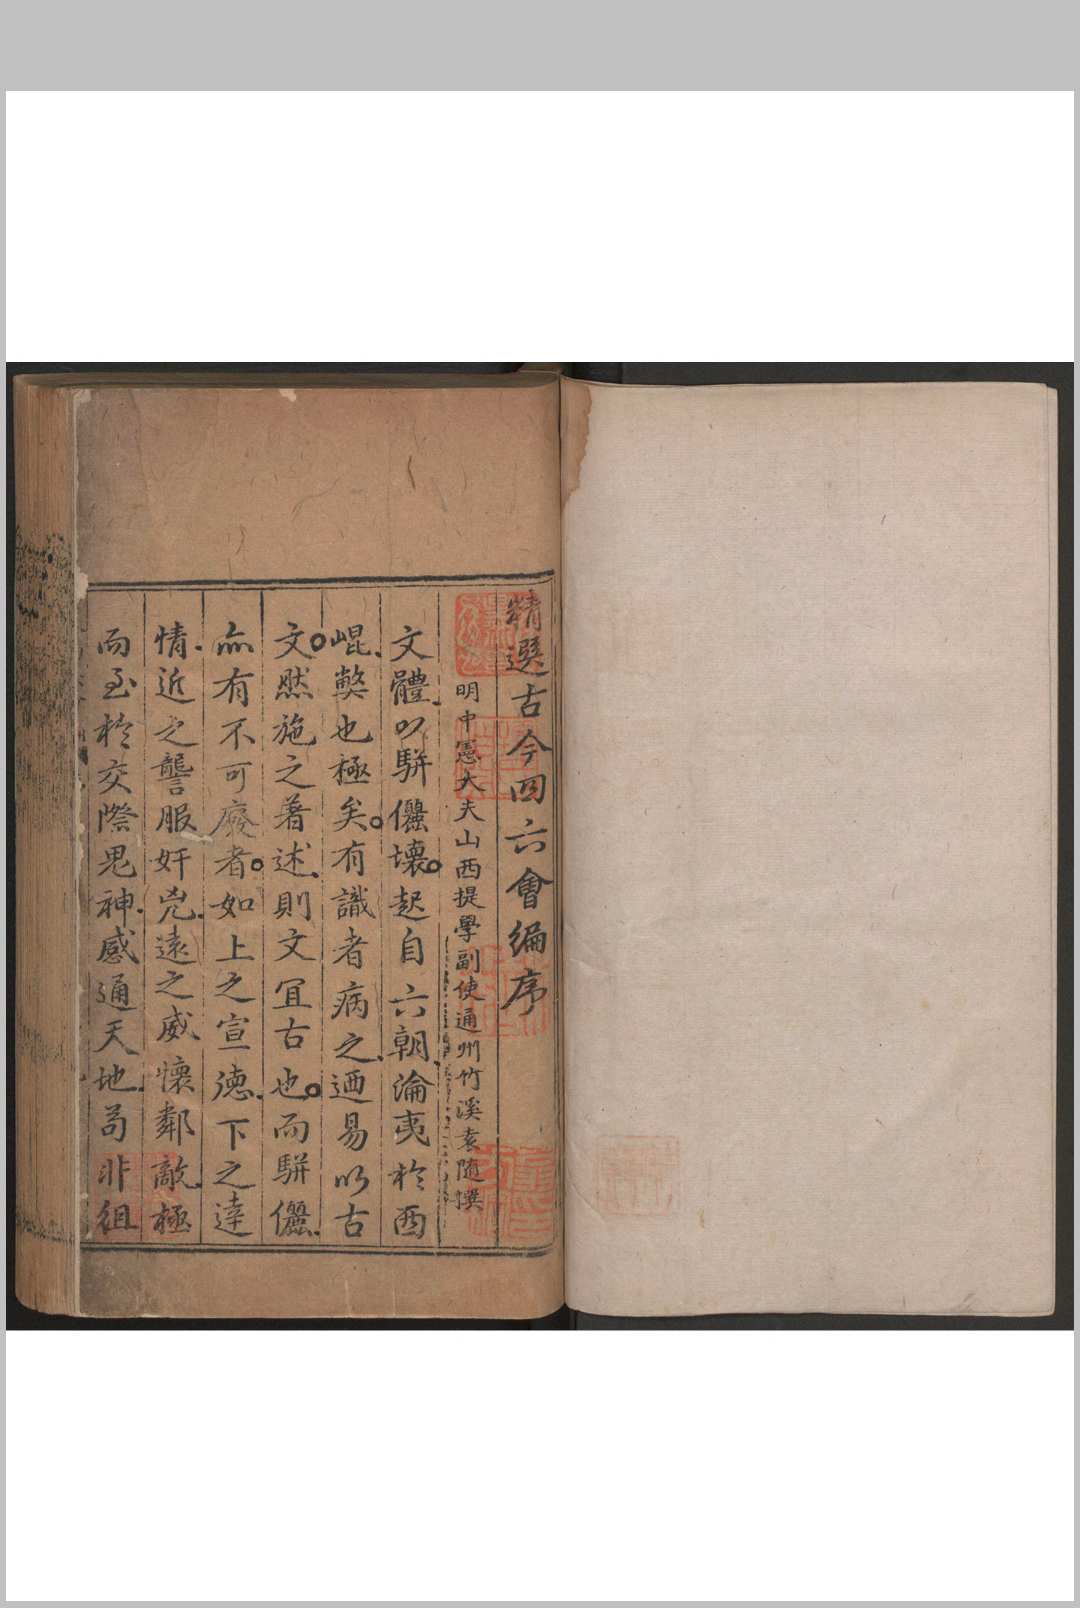 精選古今四六會編序
明中憲大夫山西提學副使通州竹溪袁隨撰
文體以駢儷壞起自六朝淪夷於西
崐獘也極矣有識者病之迺易以古
文然施之著述則文宜古也而駢儷
亦有不可廢者如上之宣德下之達
情近之讋服奸兇遠之威懷鄰敵極
而至於交際鬼神感通天地苟非組